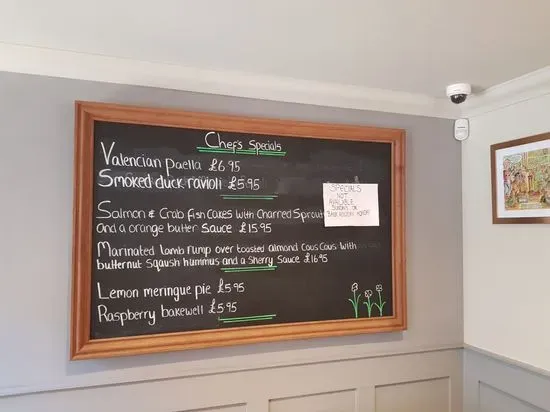 Chef's Specials
Valencian paella £6.95
Smoked duck ravioli £5.95
Salmon & Crab fish Cakes with Charred Sprout
and a orange butter Sauce £15.95
Marinated lamb rump over toasted almond Cous Cous with
butternut Sqaush hummus and a Sherry Sauce £16.95
Lemon meringue pie £5.95
Raspberry bakewell £5.95
SPECIALS
NOT
AVAILABLE
SUNDAY OR
BANK HOLIDAY MONDAY